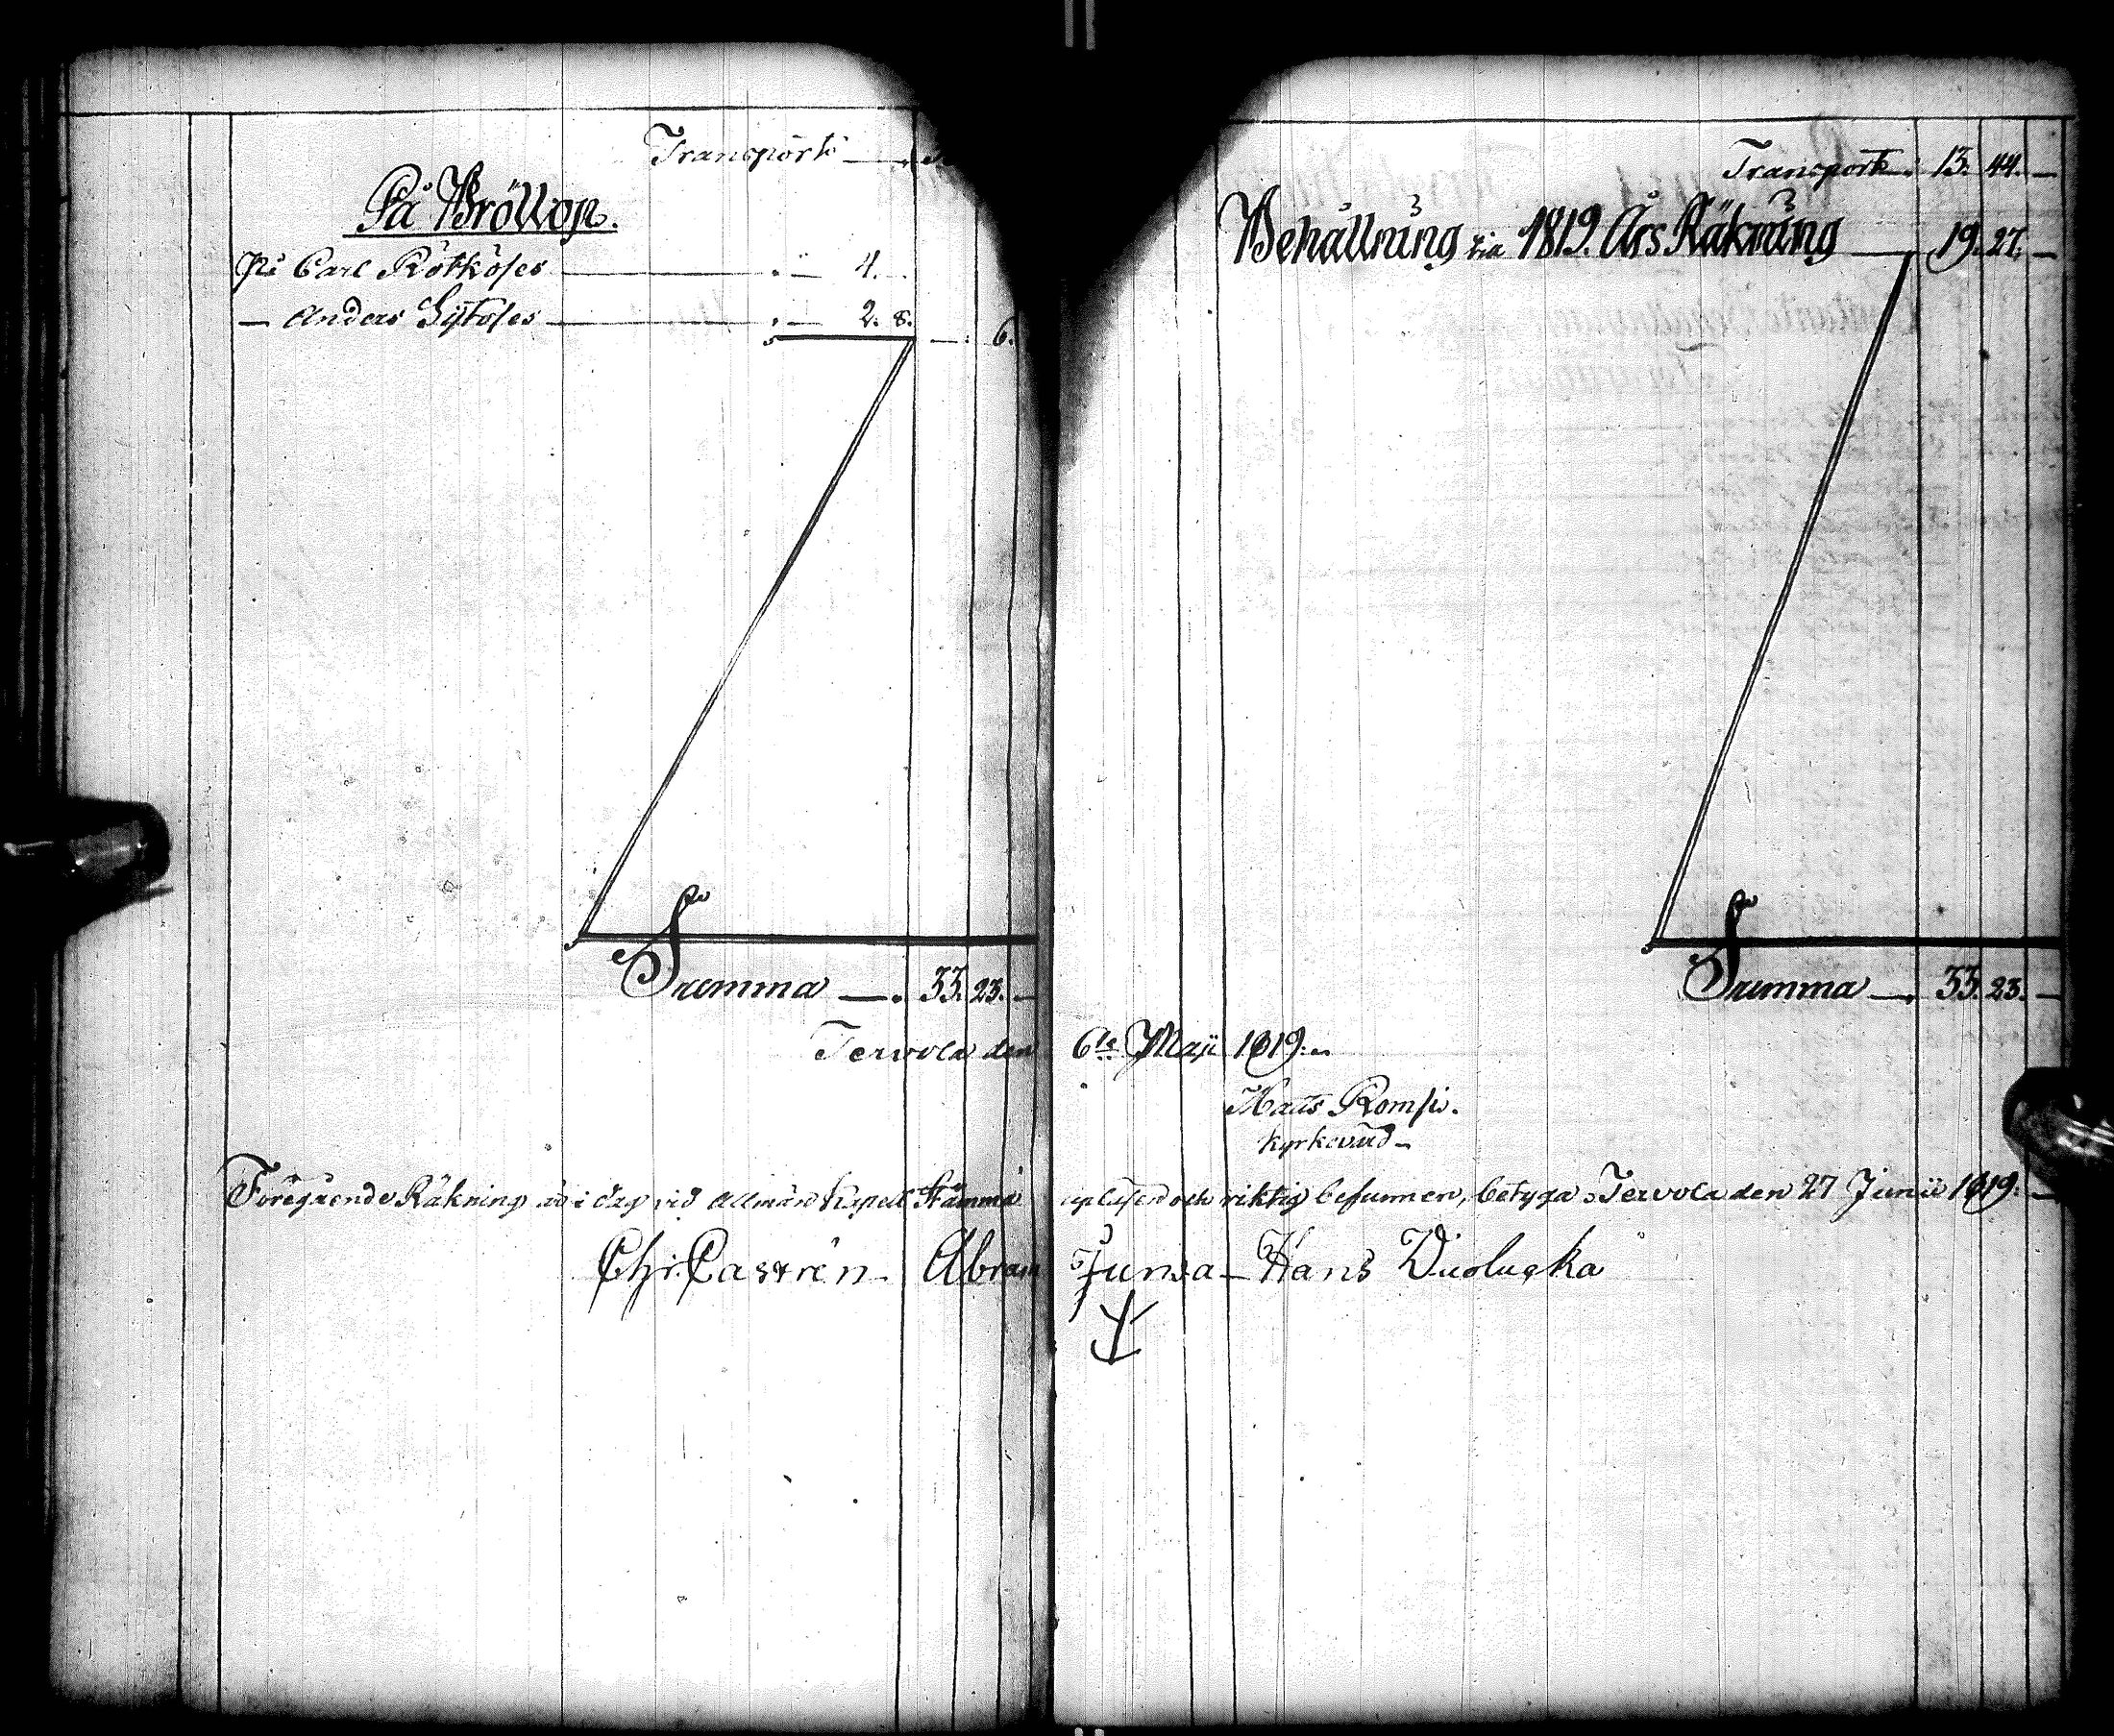 Transport
På Bröllop.
På Carl Rötköses — 4.
— Anders Sÿtöses — 2. 8. — 6.
Summa — 33. 23. —
Transport 13. 44. —
Behållning till 1819. Års Räkning — 19. 27. —
Summa — 33. 23. —
Tervola den 6te Maji 1819.
Hans Romsi.
kyrkovärd
Föregående Räkning är i dag vid allmän Kapell Stämma upläsen och riktig befunnen, betyga Tervola den 27 Junii 1819.
Chr. Castrén Abram Junsa Hans Vuolucka